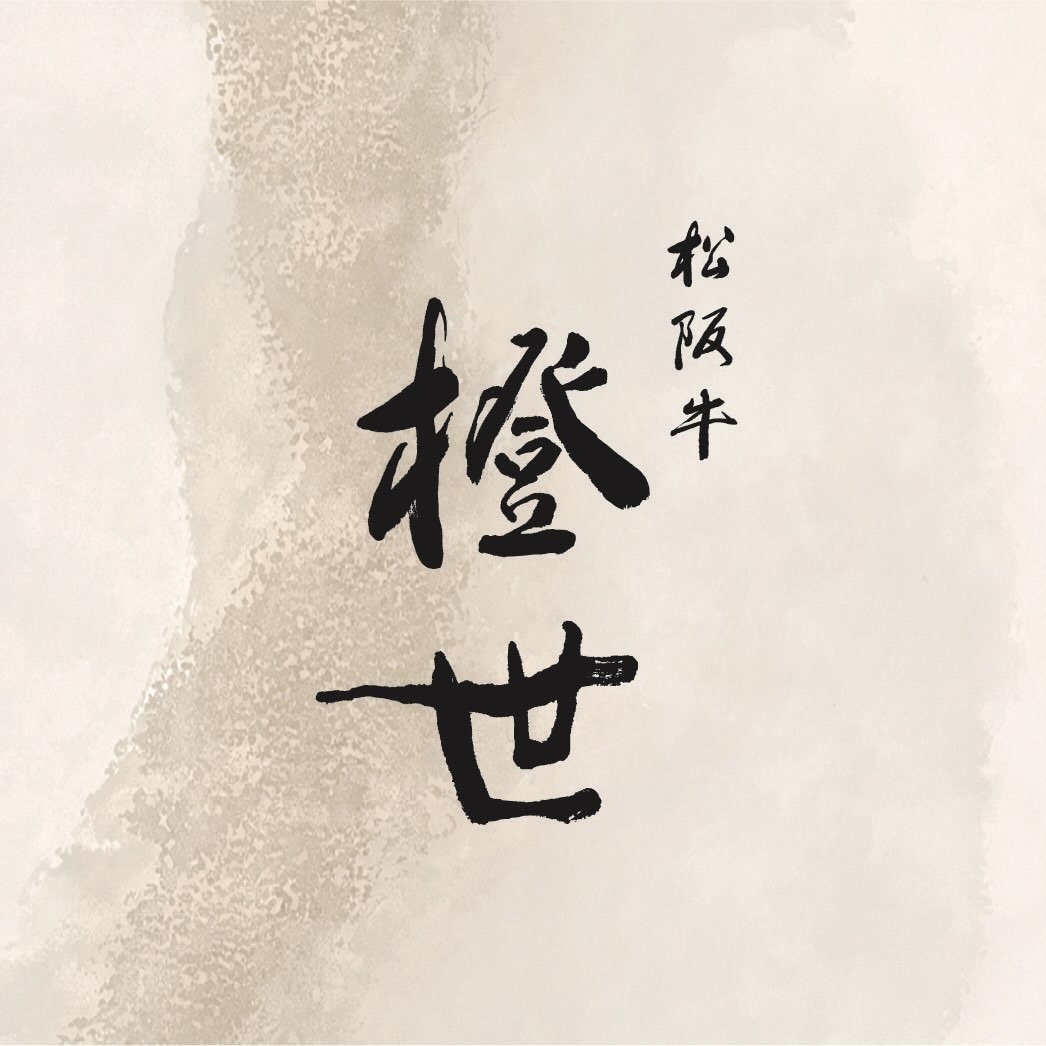 松阪牛
橙世